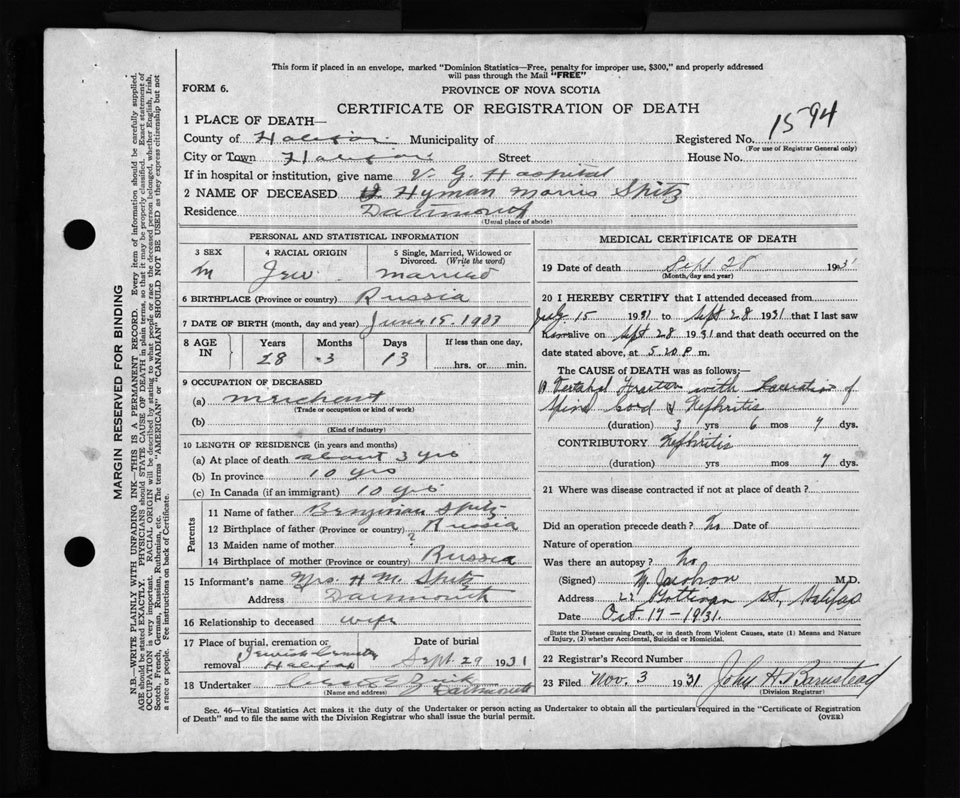 This form if placed in an envelope, marked "Dominion Statistics—Free, penalty for improper use, $300," and properly addressed
will pass through the Mail "FREE"
FORM 6.
PROVINCE OF NOVA SCOTIA
CERTIFICATE OF REGISTRATION OF DEATH
1 PLACE OF DEATH—
County of Halifax Municipality of Registered No. 1594
(For use of Registrar General only)
City or Town Halifax Street House No.
If in hospital or institution, give name V. G. Hospital
2 NAME OF DECEASED Hyman Morris Spitz
Residence Dartmouth
(Usual place of abode)
PERSONAL AND STATISTICAL INFORMATION
3 SEX 4 RACIAL ORIGIN 5 Single, Married, Widowed or
Divorced. (Write the word)
M Jew married
6 BIRTHPLACE (Province or country) Russia
7 DATE OF BIRTH (month, day and year) June 15. 1903
8 AGE IN Years Months Days If less than one day,
28 3 13 hrs. or min.
9 OCCUPATION OF DECEASED
(a) merchant
(Trade or occupation or kind of work)
(b)
(Kind of industry)
10 LENGTH OF RESIDENCE (in years and months)
(a) At place of death about 3 yrs
(b) In province 10 yrs
(c) In Canada (if an immigrant) 10 yrs
Parents
11 Name of father Benjiman Spitz
12 Birthplace of father (Province or country) Russia
13 Maiden name of mother ?
14 Birthplace of mother (Province or country) Russia
15 Informant's name Mrs. H M. Spitz
Address Dartmouth
16 Relationship to deceased wife
17 Place of burial, cremation or removal Date of burial
Jewish Cemetry
Halifax Sept. 29 1931
18 Undertaker
(Name and address) Dartmouth
MEDICAL CERTIFICATE OF DEATH
19 Date of death Sept 28 1931
(Month/day and year)
20 I HEREBY CERTIFY that I attended deceased from
July 15 1931 to Sept 28 1931 that I last saw
him alive on Sept 28 1931 and that death occurred on the
date stated above, at 5.20 P m.
The CAUSE of DEATH was as follows:—
Fracture with Laceration of
Spinal Cord & Nephritis
(duration) 3 yrs 6 mos 7 dys.
CONTRIBUTORY Nephritis
(duration) yrs mos 7 dys.
21 Where was disease contracted if not at place of death?
Did an operation precede death? No Date of
Nature of operation
Was there an autopsy? No
(Signed) M. Jacobson M.D.
Address Gottingen St, Halifax
Date Oct. 17-1931.
State the Disease causing Death, or in death from Violent Causes, state (1) Means and Nature
of Injury, (2) whether Accidental, Suicidal or Homicidal.
22 Registrar's Record Number
23 Filed Nov. 3 1931 John H. Barnstead
(Division Registrar)
Sec. 46—Vital Statistics Act makes it the duty of the Undertaker or person acting as Undertaker to obtain all the particulars required in the "Certificate of Registration
of Death" and to file the same with the Division Registrar who shall issue the burial permit.
(OVER)
MARGIN RESERVED FOR BINDING
N.B.—WRITE PLAINLY WITH UNFADING INK—THIS IS A PERMANENT RECORD. Every item of information should be carefully supplied.
AGE should be stated EXACTLY. PHYSICIANS should STATE CAUSE OF DEATH in plain terms, so that it may be properly classified. Exact statement of
OCCUPATION is very important. RACIAL ORIGIN will be described by stating to what people or race the deceased person belonged, whether English, Irish,
Scotch, French, German, Russian, Ruthenian, etc. The terms "AMERICAN" or "CANADIAN" SHOULD NOT BE USED as they express citizenship but not
a race or people. Fee instructions on back of Certificate.